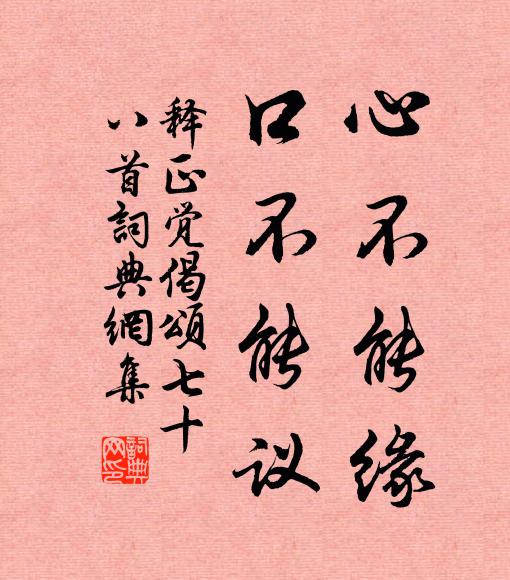 心不能缘
口不能议
释正觉偈頌七十
八首詞典網集
詞典
网印